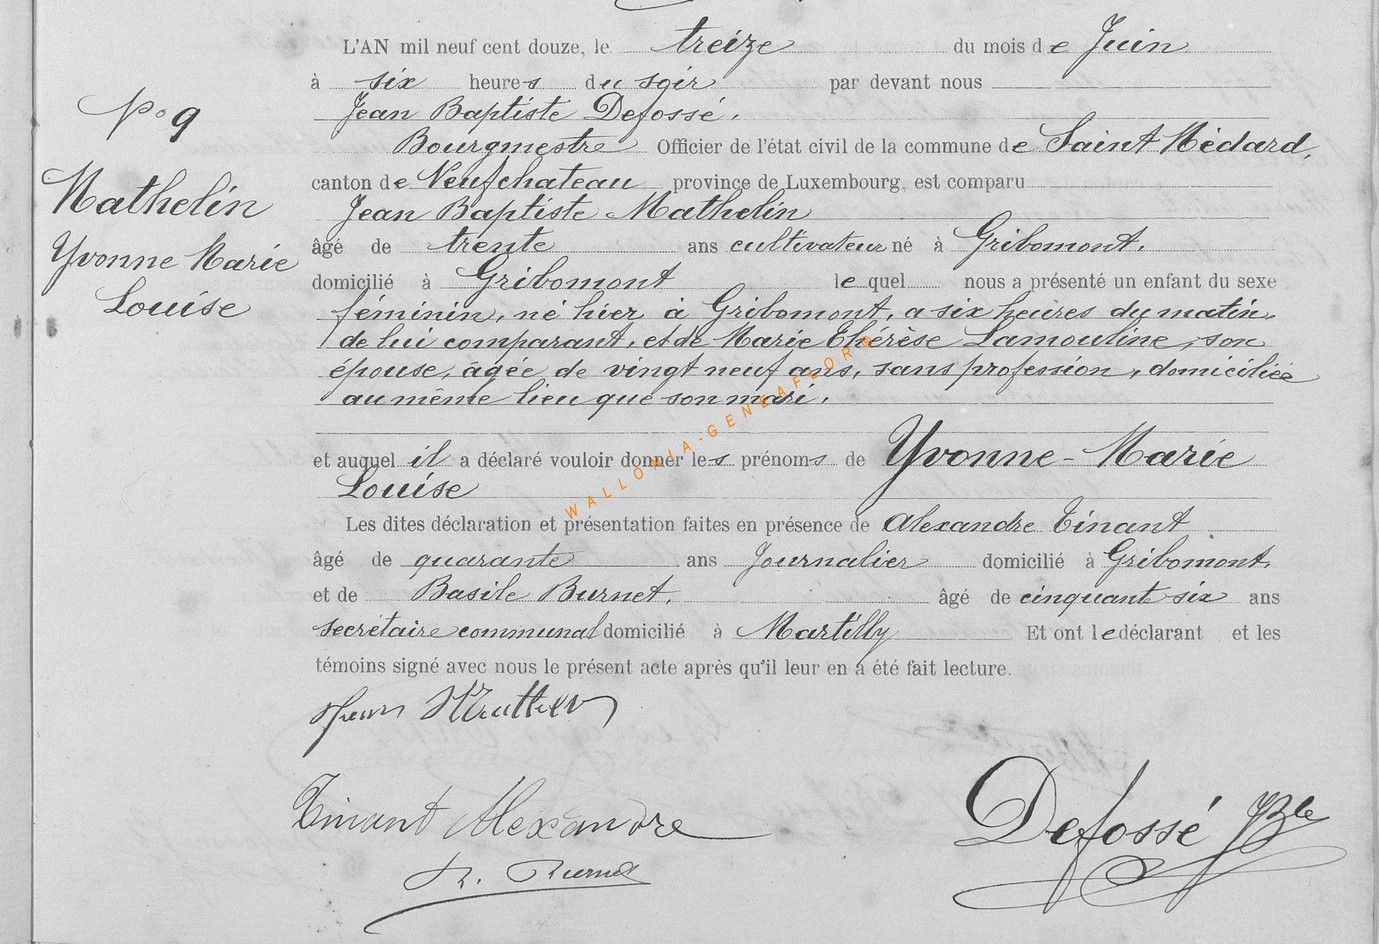 L'AN mil neuf cent douze, le treize du mois de Juin
à six heures du soir par devant nous
Jean Baptiste Defossé.
Bourgmestre Officier de l'état civil de la commune de Saint Médard.
canton de Neufchateau province de Luxembourg, est comparu
Jean Baptiste Mathelin
âgé de trente ans cultivateur né à Gribomont.
domicilié à Gribomont lequel nous a présenté un enfant du sexe
féminin, né hier à Gribomont, a six heures du matin,
de lui comparant, et de Marie Thérèse Lamouline, son
épouse, âgée de vingt neuf ans, sans profession, domiciliée
au même lieu que son mari.
et auquel il a déclaré vouloir donner les prénoms de Yvonne-Marie
Louise
Les dites déclaration et présentation faites en présence de Alexandre Tinant
âgé de quarante ans Journalier domicilié à Gribomont.
et de Basile Burnet. âgé de cinquant six ans
secrétaire communal domicilié à Martilly Et ont le déclarant et les
témoins signé avec nous le présent acte après qu'il leur en a été fait lecture.
N° 9
Mathelin
Yvonne Marie
Louise
Tinant Alexandre
Defossé JBte
WALLONIA-GENEAFLORE